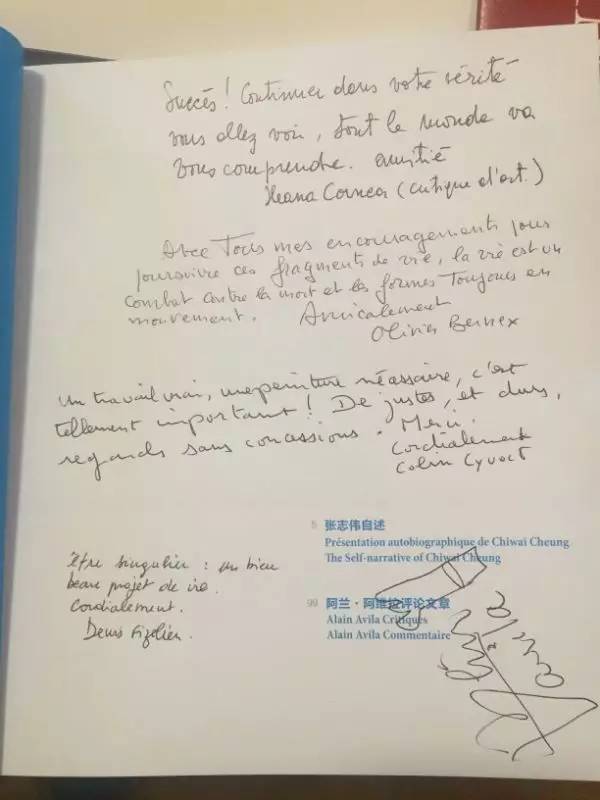 Succès ! Continuer dans votre vérité
vous allez voir, tout le monde va
vous comprendre. amitié
Ileana Cornea (critique d'art.)
Avec Tous mes encouragements pour
poursuivre ces fragments de vie, la vie est un
combat contre la mort et les formes Toujours en
mouvement. Amicalement
Olivier Bernex
un travail vrai, une peinture nécessaire, c'est
tellement important ! De justes, et durs,
regards sans concessions. Merci.
Cordialement
Colin Cyvoct
5 张志伟自述
Présentation autobiographique de Chiwai Cheung
The Self-narrative of Chiwai Cheung
99 阿兰·阿维拉评论文章
Alain Avila Critiques
Alain Avila Commentaire
Être singulier : un bien
beau projet de vie.
Cordialement.